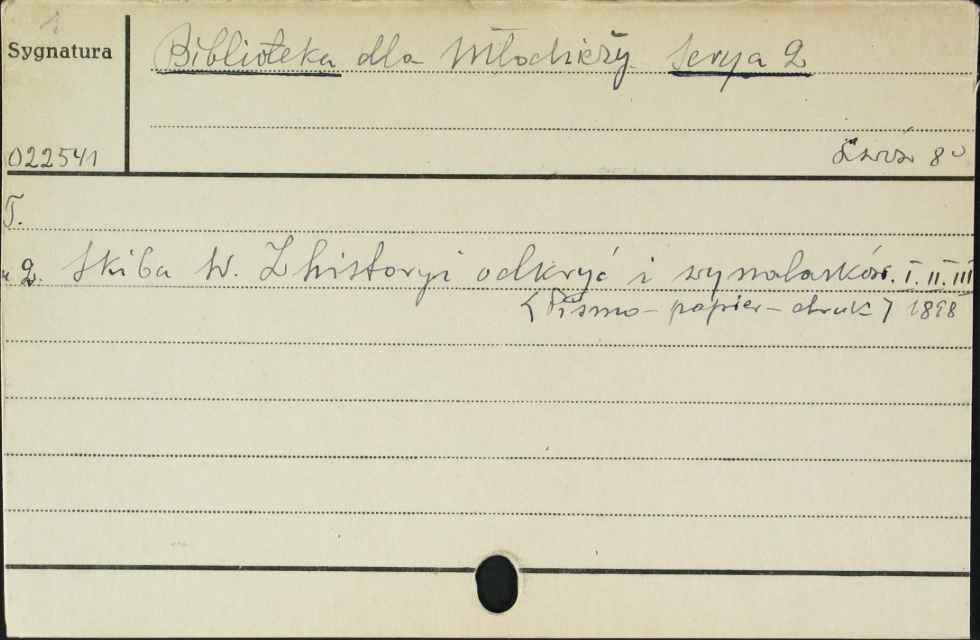 Sygnatura
Biblioteka dla Młodzieży. Serya 2
022541
Lwów 8°
T.
2. Skiba W. Z historyi odkryć i wynalasków. I. II. III
(Pismo - papier - druk) 1898